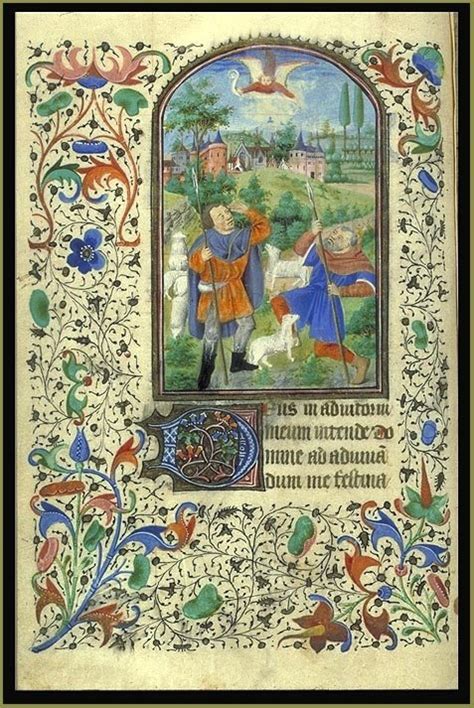 Deus in adiutoriū
meum intende Do
mine ad adiuuā
dum me festina